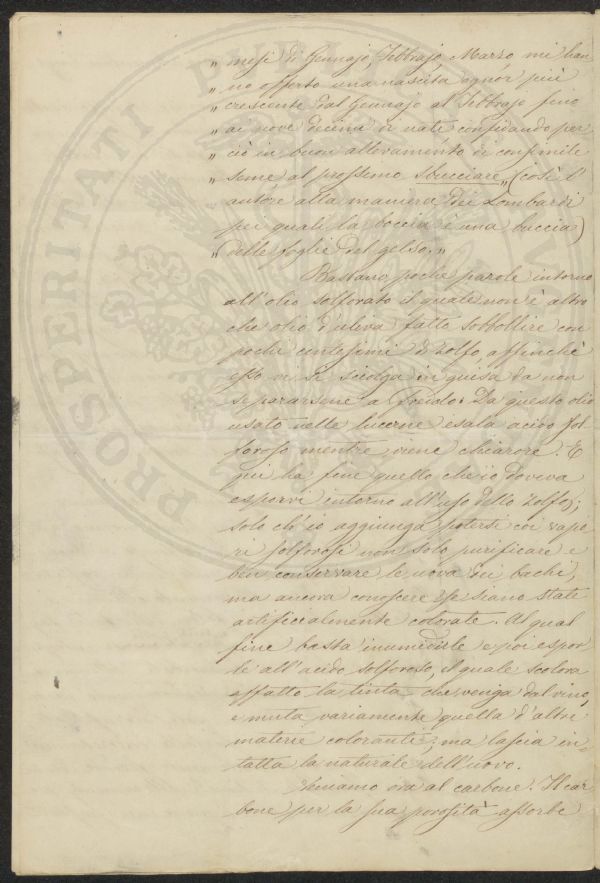 „ mesi di Gennajo, Febbrajo, Marzo mi han
„ no offerto una nascita ognor più
„ crescente dal Gennajo al Febbrajo fino
„ ai nove decimi di nati confidando per
„ ciò in buon allevamento di consimile
„ seme al prossimo sbucciare„ (così l'
autore alla maniera dei Lombardi
pei quali la boccia è una buccia)
„ delle foglie del gelso.„
Bastano poche parole intorno
all'olio solforato il quale non è altro
che olio d'uliva fatto sobbollire con
pochi centesimi di zolfo affinchè
esso vi si sciolga in guisa da non
separarsene a freddo. Da questo olio
usato nelle lucerne esala acido sol-
foroso mentre viene chiarore. E
qui ha fine quello che io doveva
esporvi intorno all'uso dello zolfo;
solo ch'io aggiunga potersi coi vapo
ri solforosi non solo purificare e
ben conservare le uova dei bachi,
ma ancora conoscere se siano state
artificialmente colorate. Al qual
fine basta inumidirle e poi espor
le all'acido solforoso, il quale scolora
affatto la tinta che venga dal vino,
e muta variamente quella d'altre
materie coloranti; ma lascia in=
tatta la naturale dell'uovo.
Veniamo ora al carbone. Il car
bone per la sua porosità assorbe
PROSPERITATI PUBL